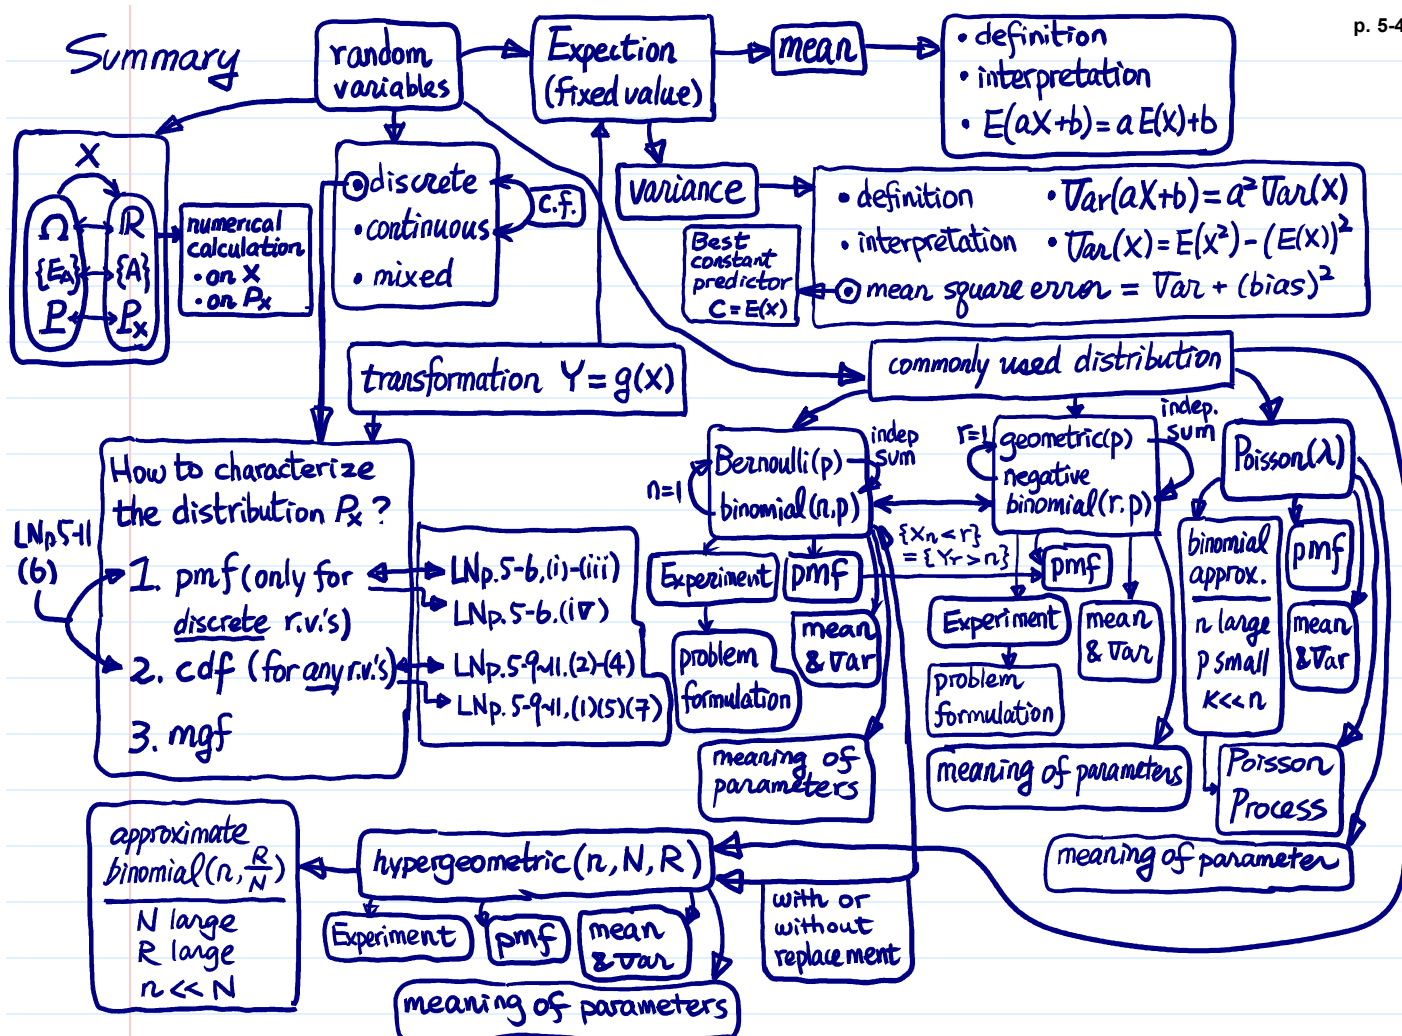 p. 5-4
Summary
random
variables
Expection
(fixed value)
mean
• definition
• interpretation
• E(aX+b) = a E(X)+b
X
Ω ℝ
{E_A} {A}
P P_X
numerical
calculation
• on X
• on P_X
discrete
• continuous
• mixed
c.f.
variance
• definition
• interpretation
• Var(aX+b) = a² Var(X)
• Var(X) = E(X²) - (E(X))²
mean square error = Var + (bias)²
Best
constant
predictor
C = E(X)
transformation Y = g(X)
commonly used distribution
How to characterize
the distribution P_X ?
1. pmf (only for
discrete r.v.'s)
2. cdf (for any r.v.'s)
3. mgf
LNp.5-11
(6)
LNp.5-6.(i)-(iii)
LNp.5-6.(iv)
LNp.5-9~11.(2)-(4)
LNp.5-9~11.(1)(5)(7)
Bernoulli(p)
binomial(n,p)
n=1
indep
sum
Experiment
pmf
problem
formulation
mean
& Var
meaning of
parameters
{X_n < r}
= {Y_r > n}
r=1
geometric(p)
negative
binomial(r.p)
indep.
sum
pmf
Experiment
mean
& Var
problem
formulation
meaning of parameters
Poisson(λ)
binomial
approx.
n large
p small
K<<n
pmf
mean
& Var
Poisson
Process
meaning of parameter
approximate
binomial(n, R/N)
N large
R large
n << N
hypergeometric(n, N, R)
Experiment
pmf
mean
& Var
meaning of parameters
with or
without
replacement